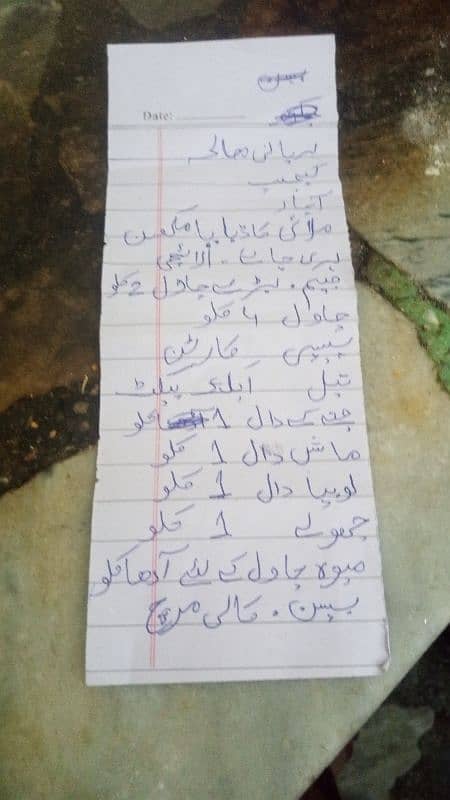 Date:
بریانی مصالحہ
کیچپ
اچار
ملائی کا ڈبا یا مکھن
ہری چائے . الائچی
جیم . بڑے چاول 2 کلو
چاول 4 کلو
پیپسی کارٹن
تیل ایک پیٹ
چنے کے دال 1 کلو
ماش دال 1 کلو
لوبیا دال 1 کلو
چھولے 1 کلو
میوہ چاول کے لئے آدھا کلو
بیسن . کالی مرچ